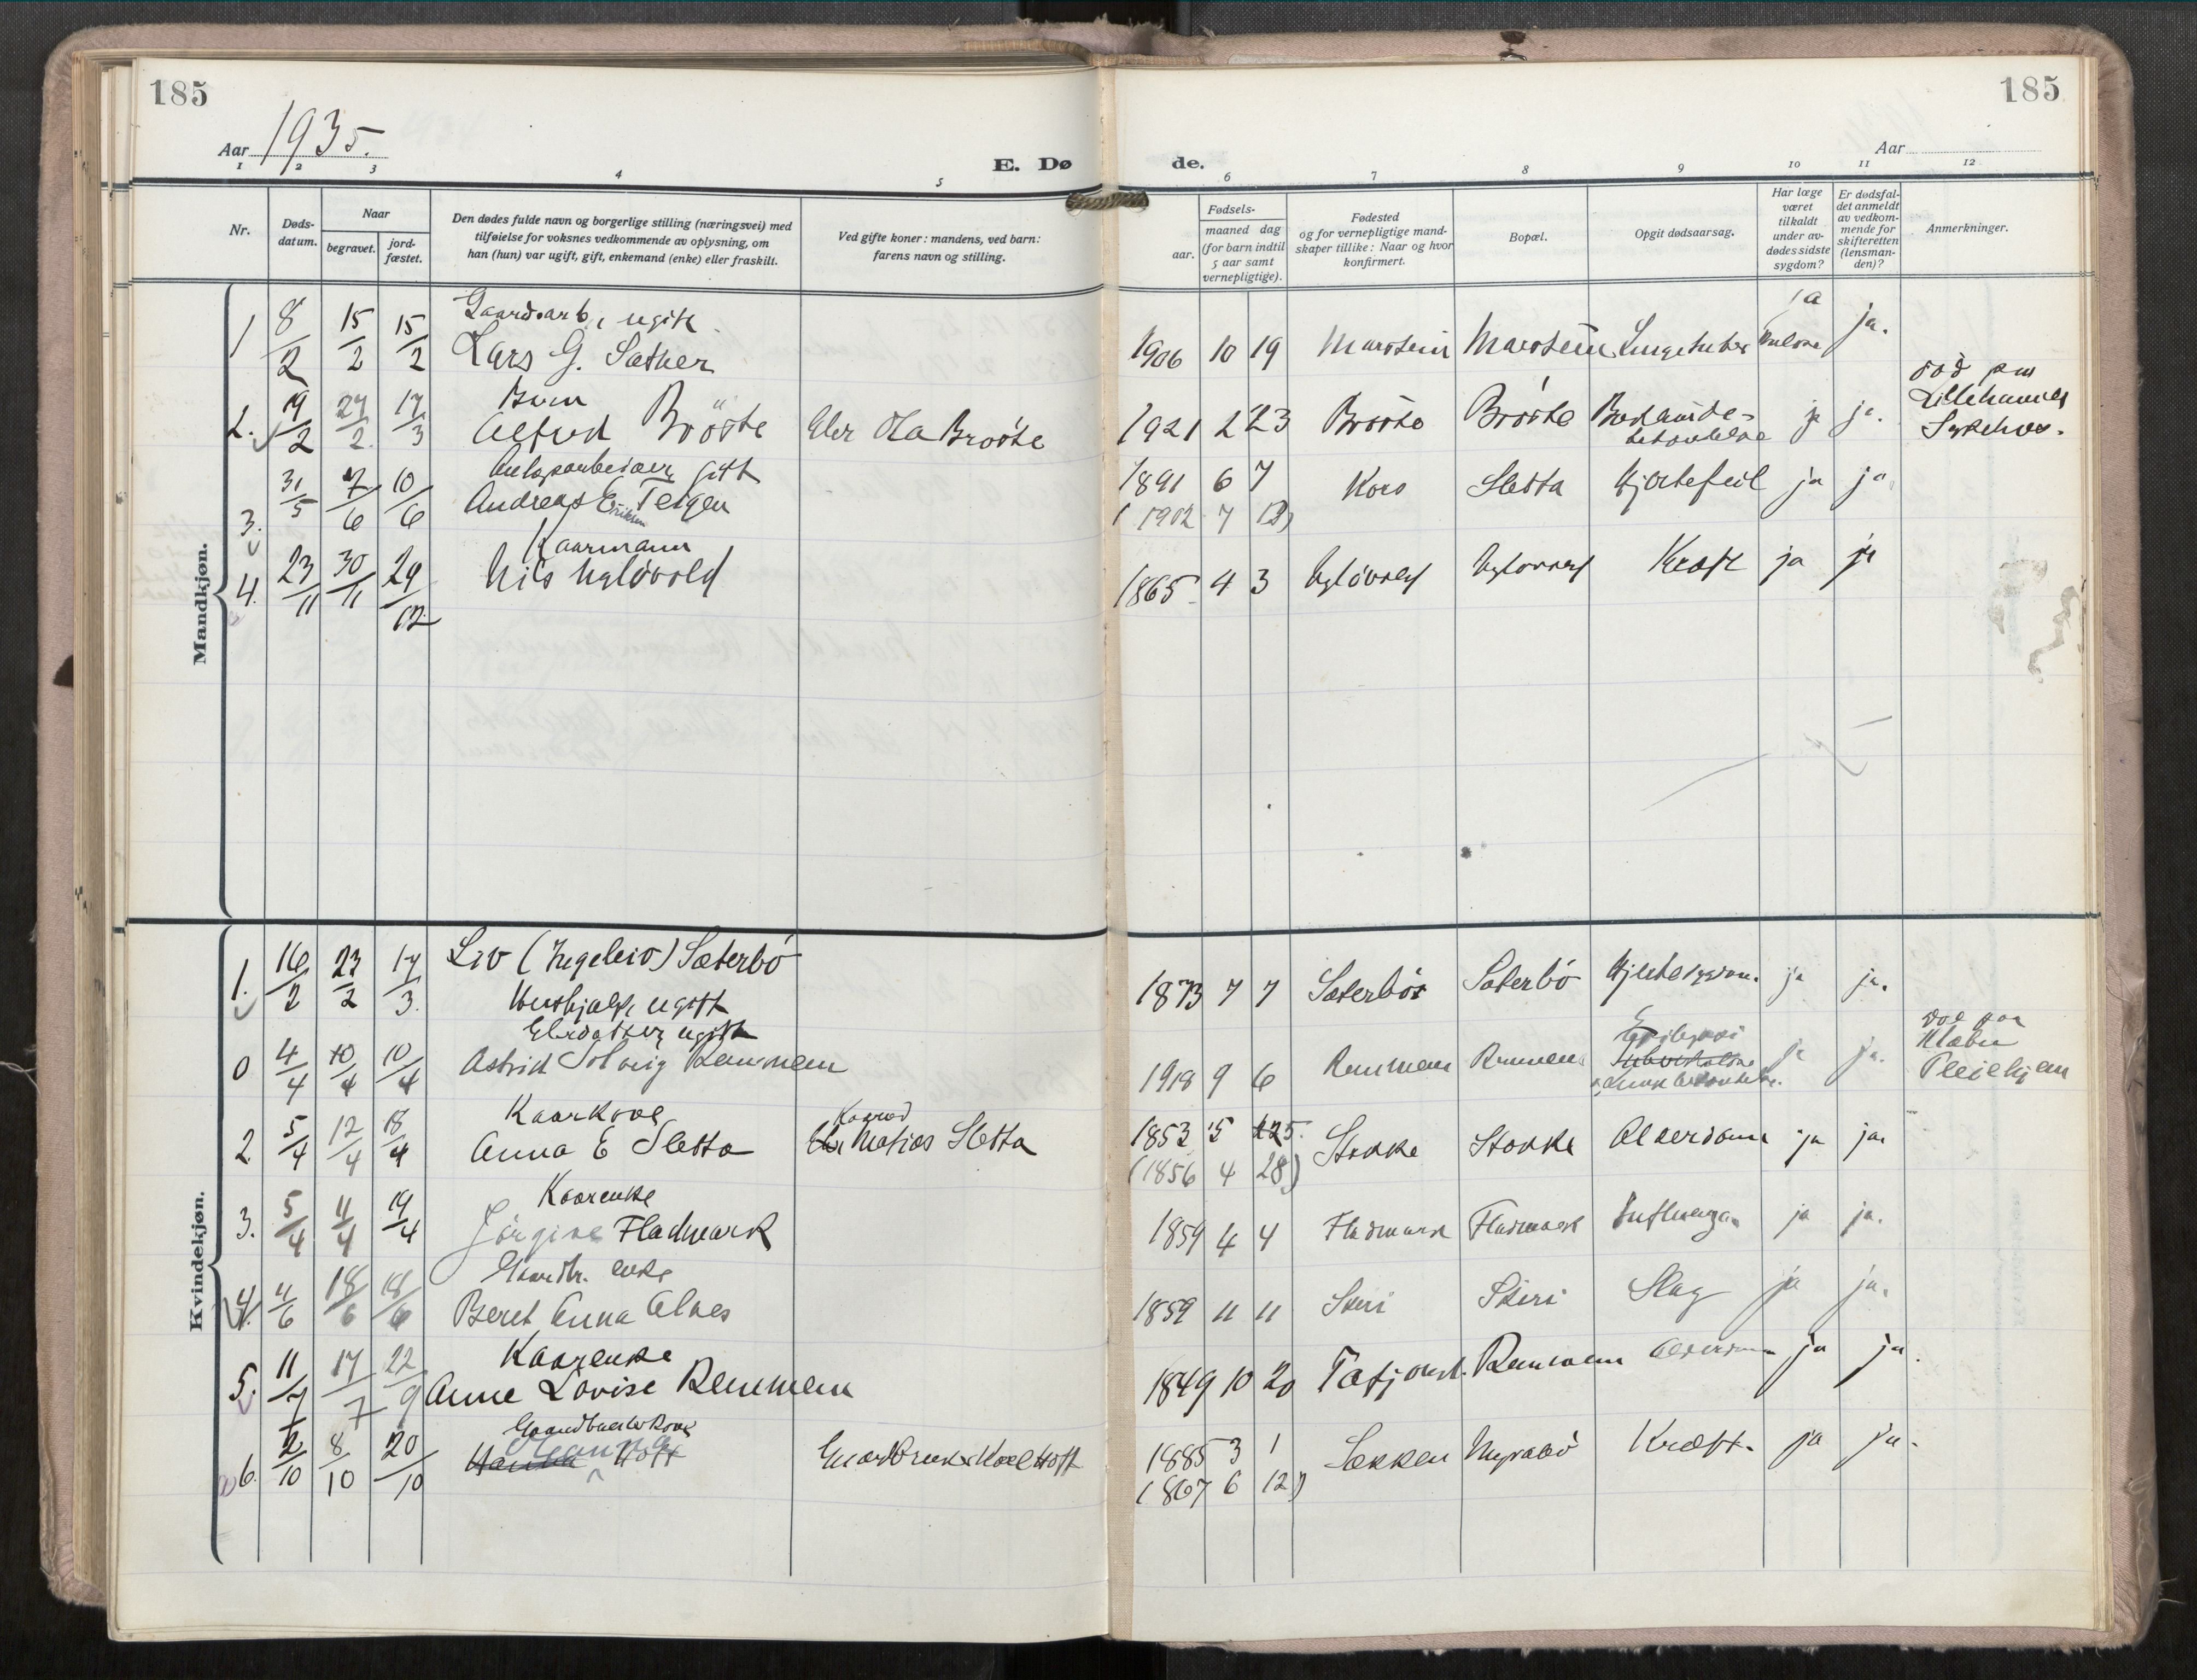 185
185
Aar 1935.
E. Dø
de.
Aar
1 2 3 4 5 6 7 8 9 10 11 12
Nr.
Døds-
datum.
Naar
begravet.
jord-
fæstet.
Den dødes fulde navn og borgerlige stilling (næringsvei) med
tilføielse for voksnes vedkommende av oplysning, om
han (hun) var ugift, gift, enkemand (enke) eller fraskilt.
Ved gifte koner: mandens, ved barn:
farens navn og stilling.
Fødsels-
aar.
maaned dag
(for barn indtil
5 aar samt
vernepligtige).
Fødested
og for vernepligtige mand-
skaper tillike: Naar og hvor
konfirmert.
Bopæl.
Opgit dødsaarsag.
Har læge
været
tilkaldt
under av-
dødes sidste
sygdom?
Er dødsfal-
det anmeldt
av vedkom-
mende for
skifteretten
(lensman-
den)?
Anmerkninger.
Mandkjøn.
Gaardsarb, ugift ja
1 8/2 15/2 15/2 Lars G. Sæther 1906 10 19 Marstein Marstein ja.
Barn
2. 19/2 27/2 17/3 Alfred Brøste Ola Brøste 1921 2 23 Brøste Brøste ja ja. død paa
Lillehammer
Sykehus.
gift
3. 31/5 7/6 10/6 Andreas E Teigen 1891 6 7 Kors Sletta Hjertefeil ja ja
Eriksen
(1902 7 13)
Kaarmann
4. 23/11 30/11 29/12 Nils Ugløvold 1865 4 3 Kræft ja ja
Kvindekjøn.
1. 16/2 23/2 17/3 Liv (Ingeleiv) Sæterbø 1873 7 7 Sæterbø Sæterbø Hjertesygdom. ja ja.
Hushjælp, ugift
ugift
Epilepsi
0 4/4 10/4 10/4 Astrid Solveig Remmem 1918 9 6 Remmem Remmem ja ja. død paa
Klæbu
Pleiehjem
Kaarkone
Konrad
2 5/4 12/4 18/4 Anna E Sletta Matias Sletta 1853 5 25. Stokke Stokke Alderdom ja ja
(1856 4 28)
Kaarenke
3. 5/4 11/4 19/4 Jørgine Fladmark 1859 4 4 Fladmark Fladmark Influenza ja ja.
Gaardbr. enke
4. 11/6 18/6 18/6 Beret Anna Alnes 1859 11 11 Skiri Skiri Slag ja ja.
Kaarenke
5. 11/7 17/7 22/9 Anne Lovise Remmem 1849 10 20 Tafjord. Remmem Alderdom ja ja.
Gaardbrukerkone
6. 2/10 8/10 20/10 Hoff Hoff 1885 3 1 Sekken Myrabø Kræft. ja ja.
(1867 6 12)